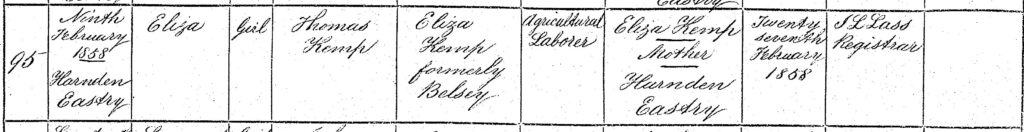 95
Ninth
February
1858
Harnden
Eastry
Eliza
Girl
Thomas
Kemp
Eliza
Kemp
formerly
Belsey
Agricultural
Laborer
Eliza Kemp
Mother
Hurnden
Eastry
Twenty
seventh
February
1858
Lass
Registrar